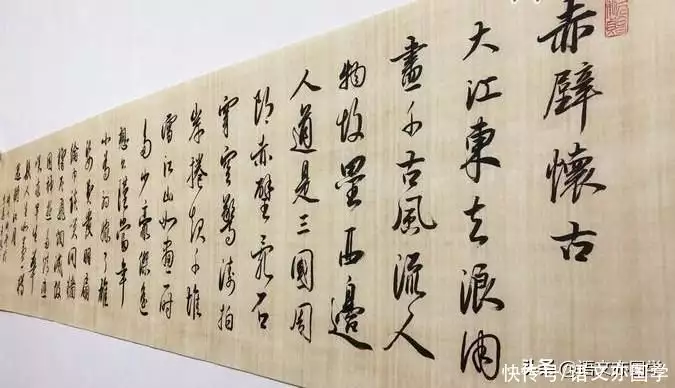 赤壁懷古
大江東去浪淘
盡千古風流人
物故壘西邊
人道是三國周
郎赤壁亂石
穿空驚濤拍
岸捲起千堆
雪江山如畫一时
多少豪傑遙
想公瑾當年
小喬初嫁了雄
姿英發羽扇
綸巾談笑間檣
國神遊多情應
笑我早生華
髮人生如夢一樽
还酹江月
头条 @语文亦国学
快传号/语文亦国学